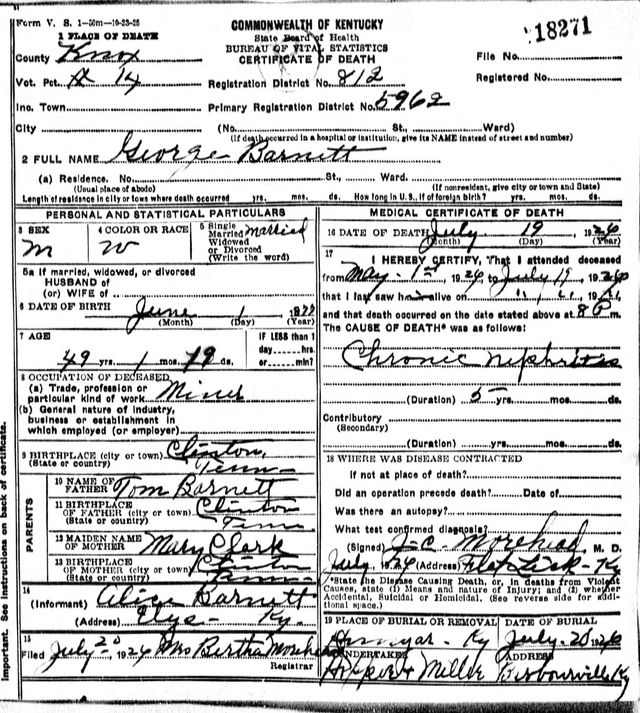 Form V. S. 1-50m-10-23-25
COMMONWEALTH OF KENTUCKY
State Board of Health
BUREAU OF VITAL STATISTICS
CERTIFICATE OF DEATH
18271
1 PLACE OF DEATH
County Knox
File No.
Vot. Pct. # 14
Registration District No. 812
Registered No.
Inc. Town
Primary Registration District No. 5962
City (No. St., Ward)
(If death occurred in a hospital or institution, give its NAME instead of street and number)
2 FULL NAME George Barnett
(a) Residence. No. St., Ward.
(Usual place of abode) (If nonresident, give city or town and State)
Length of residence in city or town where death occurred yrs. mos. ds. How long in U.S., if of foreign birth? yrs. mos. ds.
PERSONAL AND STATISTICAL PARTICULARS
3 SEX M
4 COLOR OR RACE W
5 Single Married Widowed or Divorced (Write the word) married
5a If married, widowed, or divorced
HUSBAND of
(or) WIFE of
6 DATE OF BIRTH June 1 1877
(Month) (Day) (Year)
7 AGE
49 yrs. 1 mos. 19 ds.
IF LESS than 1 day hrs. or min?
8 OCCUPATION OF DECEASED
(a) Trade, profession or particular kind of work Miner
(b) General nature of industry, business or establishment in which employed (or employer)
9 BIRTHPLACE (city or town) Clinton,
(State or country) Tenn
PARENTS
10 NAME OF FATHER Tom Barnett
11 BIRTHPLACE OF FATHER (city or town) Clinton
(State or country) Tenn
12 MAIDEN NAME OF MOTHER Mary Clark
13 BIRTHPLACE OF MOTHER (city or town) Clinton
(State or country) Tenn
14
(Informant) Alice Barnett
(Address) Ky.
15
Filed July 20, 1926 Mrs Bertha Morehead
Registrar
MEDICAL CERTIFICATE OF DEATH
16 DATE OF DEATH July 19 1926
(Month) (Day) (Year)
17 I HEREBY CERTIFY, That I attended deceased
from May 1st, 1926, to July 19, 1926
that I last saw h alive on " " 19
and that death occurred on the date stated above at 8 P m.
The CAUSE OF DEATH* was as follows:
Chronic Nephritis
(Duration) 5 yrs. mos. ds.
Contributory
(Secondary)
(Duration) yrs. mos. ds.
18 WHERE WAS DISEASE CONTRACTED
If not at place of death?
Did an operation precede death? Date of
Was there an autopsy?
What test confirmed diagnosis?
(Signed) J.C. Morehead M. D.
July, 1926 (Address) Flat Lick - Ky
*State the Disease Causing Death, or, in deaths from Violent Causes, state (1) Means and nature of Injury; and (2) whether Accidental, Suicidal or Homicidal. (See reverse side for additional space.)
19 PLACE OF BURIAL OR REMOVAL Ky
DATE OF BURIAL July 20 1926
20 UNDERTAKER Miller
ADDRESS Barbourville, Ky
Important. See instructions on back of certificate.